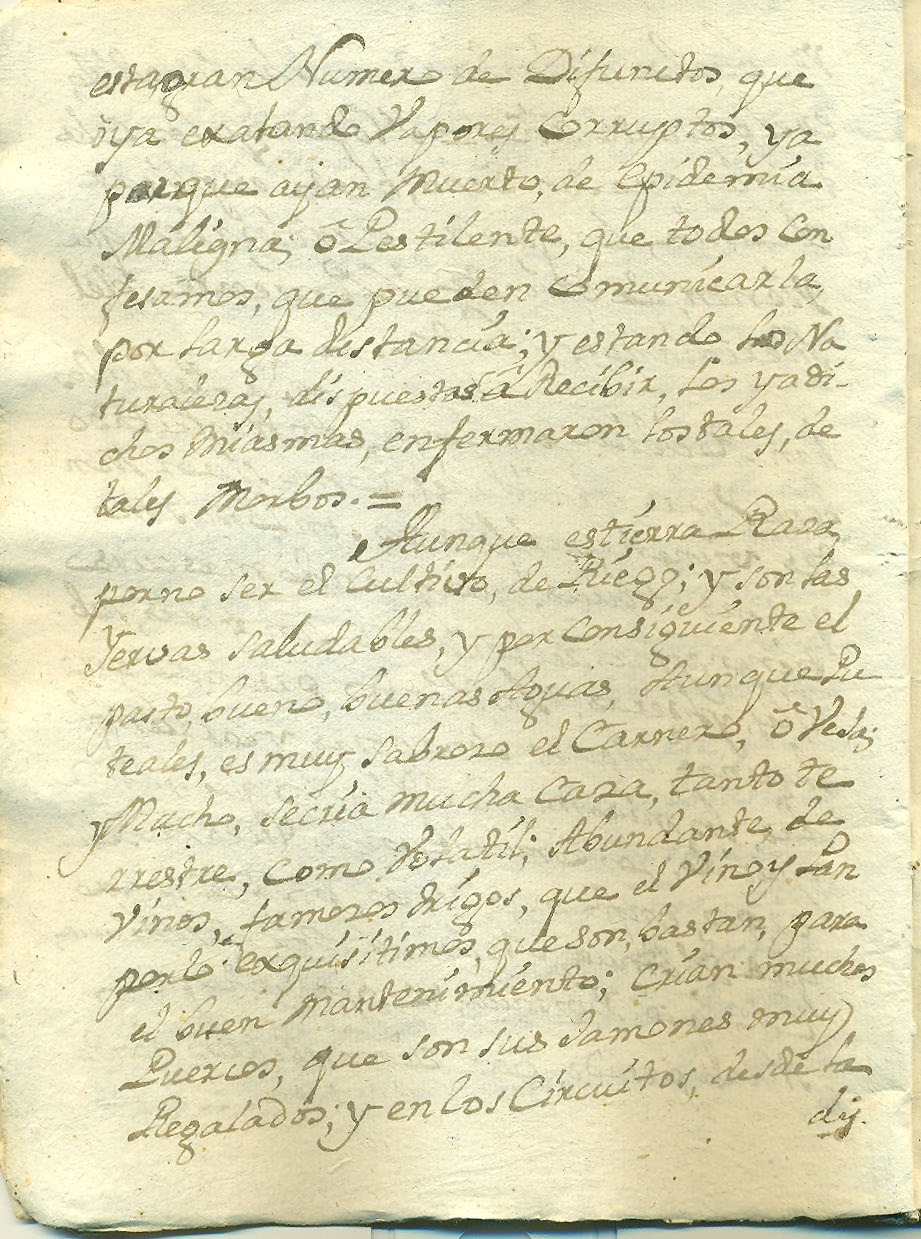 esta gran Numero de Difunctos, que
ô ya exalando Vapores Corruptos, ya
porque ayan Muerto, de Epidemia
Maligna, ô Pestilente, que todos Con
fesamos, que pueden Comunicarla,
por larga distancia; y estando las Na
turalezas, dispuestas â Recibir, los ya di-
chos Miasmas, enfermaron los tales, de
tales Morbos. =
Aunque es tierra Rasa,
por no ser el Cultivo, de Riego; y son las
Yervas saludables, y por consiguiente el
pasto bueno, buenas Aguas, Aunque Pu
teales, es muy sabroso el Carnero, ô Veda;
y Macho, se cria mucha Caza, tanto te
rrestre, Como Volatil; Abundante, de
Vinos, famosos trigos, que el Vino y Pan
por lo exquisitimos, que son, bastan, para
el buen Mantenimiento; Crian muchos
Puercos, que son sus Jamones muy
Regalados; y en los Circuitos, desde la
dis.